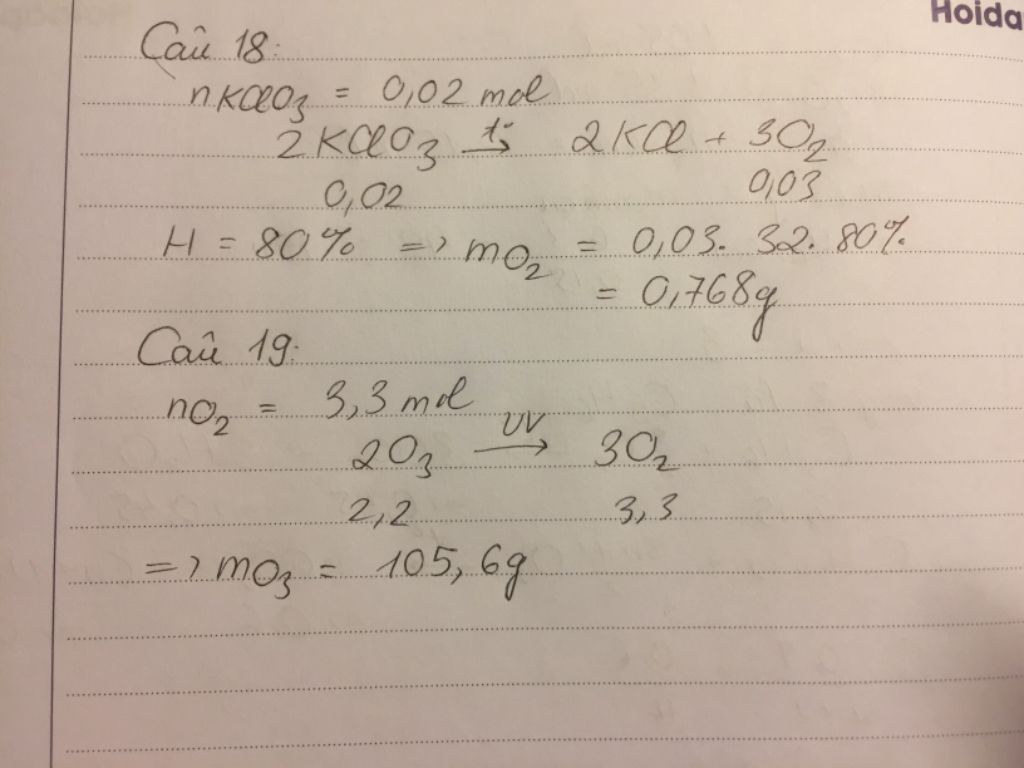 Hoida
Câu 18:
nKClO3 = 0,02 mol
2KClO3 t°→ 2KCl + 3O2
0,02 0,03
H = 80% => mO2 = 0,03. 32. 80%
= 0,768g
Câu 19:
nO2 = 3,3 mol
2O3 UV→ 3O2
2,2 3,3
=> mO3 = 105,6g